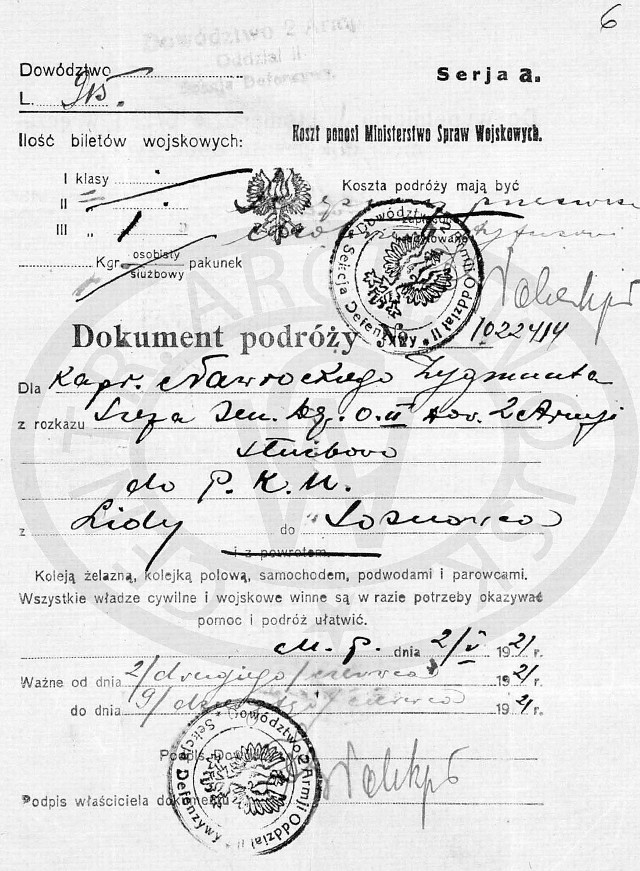 6
Dowództwo 2 Armji
Oddział II
Sekcja Defenzywy.
Dowództwo
L. 915.
Serja a.
Ilość biletów wojskowych:
Koszt ponosi Ministerstwo Spraw Wojskowych.
I klasy
II "
III " 1 "
Koszta podróży mają być
Kgr. osobisty
służbowy pakunek
Dowództwo 2 Armji Oddział II * Sekcja Defenzywy *
Dokument podróży No 1022414
Dla kapr. Nawrockiego Zygmunta
z rozkazu Szefa O. II Dow. 2 Armji
służbowo
do P. K. U.
z Lidy do Sosnowca
i z powrotem
Koleją żelazną, kolejką polową, samochodem, podwodami i parowcami.
Wszystkie władze cywilne i wojskowe winne są w razie potrzeby okazywać
pomoc i podróż ułatwić.
M. p. dnia 2/V 1921 r.
Ważne od dnia 2/drugiego/czerwca 1921 r.
do dnia 9/ czerwca 1921 r.
Podpis
Dowództwo 2 Armji Oddział II * Sekcja Defenzywy *
Podpis właściciela dokumentu